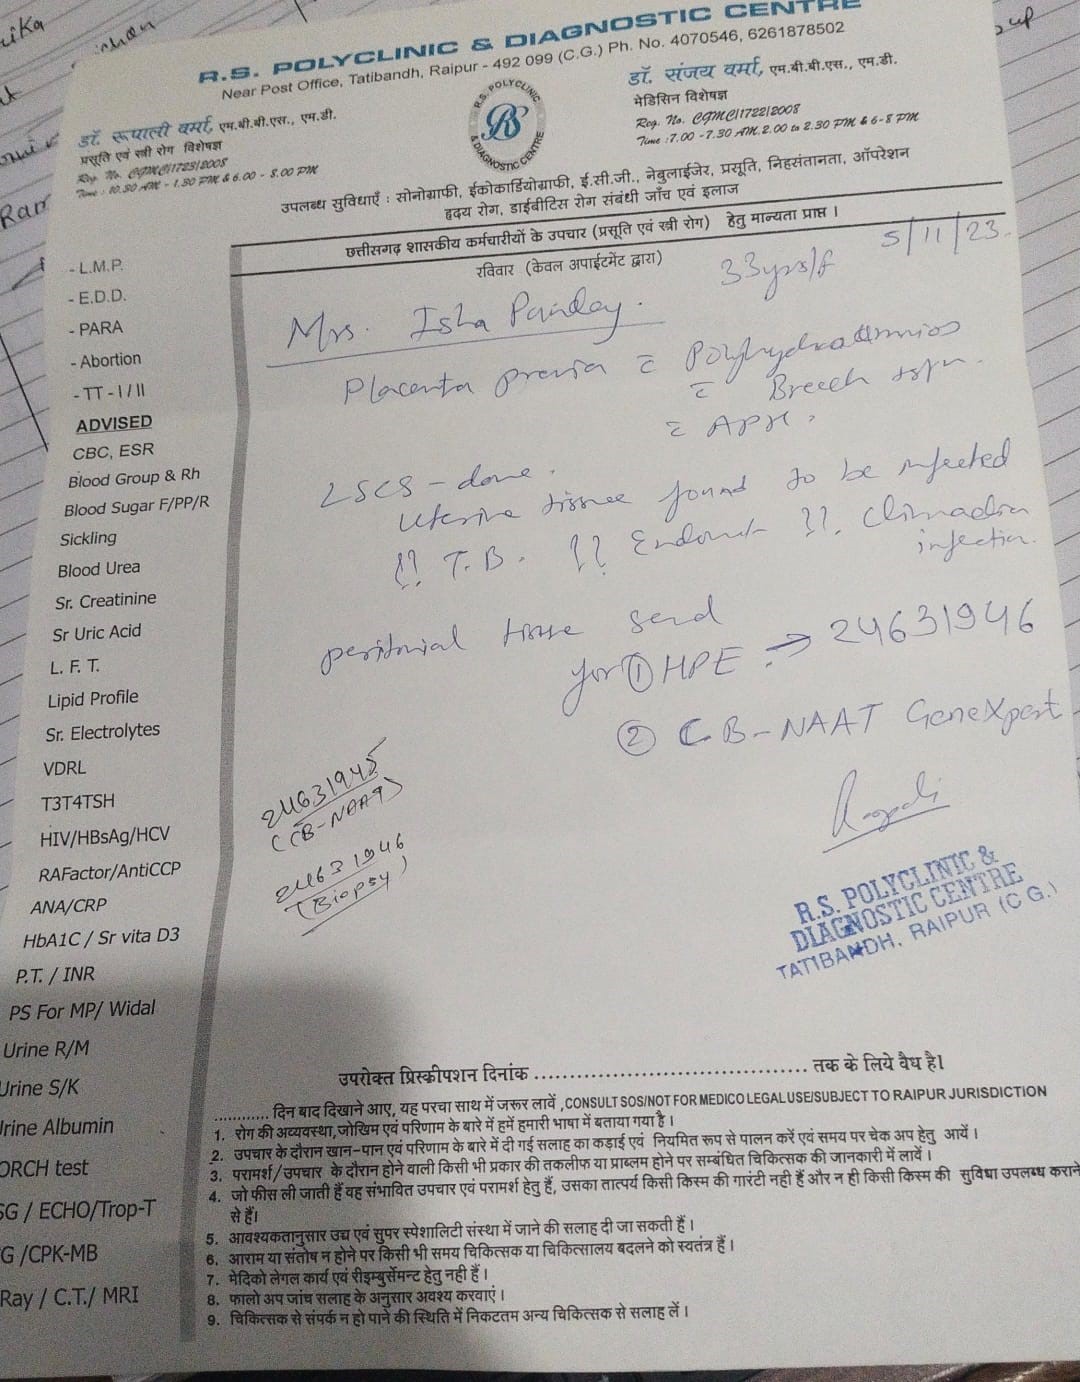 R.S. POLYCLINIC & DIAGNOSTIC CENTRE
Near Post Office, Tatibandh, Raipur - 492 099 (C.G.) Ph. No. 4070546, 6261878502
डॉ. रूपाली वर्मा, एम.बी.बी.एस., एम.डी.
प्रसूति एवं स्त्री रोग विशेषज्ञ
Reg. No. CGMC/1723/2008
Time : 10.30 AM - 1.30 PM & 6.00 - 8.00 PM
R.S. POLYCLINIC
RS
& DIAGNOSTIC CENTRE
डॉ. संजय वर्मा, एम.बी.बी.एस., एम.डी.
मेडिसिन विशेषज्ञ
Reg. No. CGMC/1722/2008
Time : 7.00 - 7.30 AM. 2.00 to 2.30 PM & 6-8 PM
उपलब्ध सुविधाएँ : सोनोग्राफी, ईकोकार्डियोग्राफी, ई.सी.जी., नेबुलाईजेर, प्रसूति, निहसंतानता, ऑपरेशन
हृदय रोग, डाईबीटिस रोग संबंधी जाँच एवं इलाज
छत्तीसगढ़ शासकीय कर्मचारीयों के उपचार (प्रसूति एवं स्त्री रोग) हेतु मान्यता प्राप्त ।
रविवार (केवल अपाईटमेंट द्वारा)
5/11/23.
Mrs. Isha Pandey. 33yrs/f
Placenta previa c̄ Polyhydroamnios
c̄ Breech
c̄ APH.
LSCS - done.
Uterine tissue found to be infected
?? T.B. ?? ??
infection.
peritonial tissue send
for ① HPE → 24631946
② CB-NAAT GeneXpert
24631945
(CB-NAAT)
24631946
(Biopsy)
R.S. POLYCLINIC &
DIAGNOSTIC CENTRE
TATIBANDH, RAIPUR (C G.)
- L.M.P.
- E.D.D.
- PARA
- Abortion
- TT - I / II
ADVISED
CBC, ESR
Blood Group & Rh
Blood Sugar F/PP/R
Sickling
Blood Urea
Sr. Creatinine
Sr Uric Acid
L. F. T.
Lipid Profile
Sr. Electrolytes
VDRL
T3T4TSH
HIV/HBsAg/HCV
RAFactor/AntiCCP
ANA/CRP
HbA1C / Sr vita D3
P.T. / INR
PS For MP/ Widal
Urine R/M
Urine S/K
Urine Albumin
ORCH test
SG / ECHO/Trop-T
G /CPK-MB
Ray / C.T./ MRI
उपरोक्त प्रिस्क्रीपशन दिनांक .................................... तक के लिये वैध है।
............ दिन बाद दिखाने आए, यह परचा साथ में जरूर लावें ,CONSULT SOS/NOT FOR MEDICO LEGAL USE/SUBJECT TO RAIPUR JURISDICTION
1. रोग की अव्यवस्था,जोखिम एवं परिणाम के बारे में हमें हमारी भाषा में बताया गया है ।
2. उपचार के दौरान खान-पान एवं परिणाम के बारे में दी गई सलाह का कड़ाई एवं नियमित रूप से पालन करें एवं समय पर चेक अप हेतु आयें ।
3. परामर्श/उपचार के दौरान होने वाली किसी भी प्रकार की तकलीफ या प्राब्लम होने पर सम्बंधित चिकित्सक की जानकारी में लावें ।
4. जो फीस ली जाती हैं वह संभावित उपचार एवं परामर्श हेतु हैं, उसका तात्पर्य किसी किस्म की गारंटी नही हैं और न ही किसी किस्म की सुविधा उपलब्ध कराने
से हैं।
5. आवश्यकतानुसार उच्च एवं सुपर स्पेशालिटी संस्था में जाने की सलाह दी जा सकती हैं ।
6. आराम या संतोष न होने पर किसी भी समय चिकित्सक या चिकित्सालय बदलने को स्वतंत्र हैं ।
7. मेदिको लेगल कार्य एवं रीइम्बुर्सेमन्ट हेतु नही हैं ।
8. फालो अप जांच सलाह के अनुसार अवश्य करवाएं ।
9. चिकित्सक से संपर्क न हो पाने की स्थिति में निकटतम अन्य चिकित्सक से सलाह लें ।